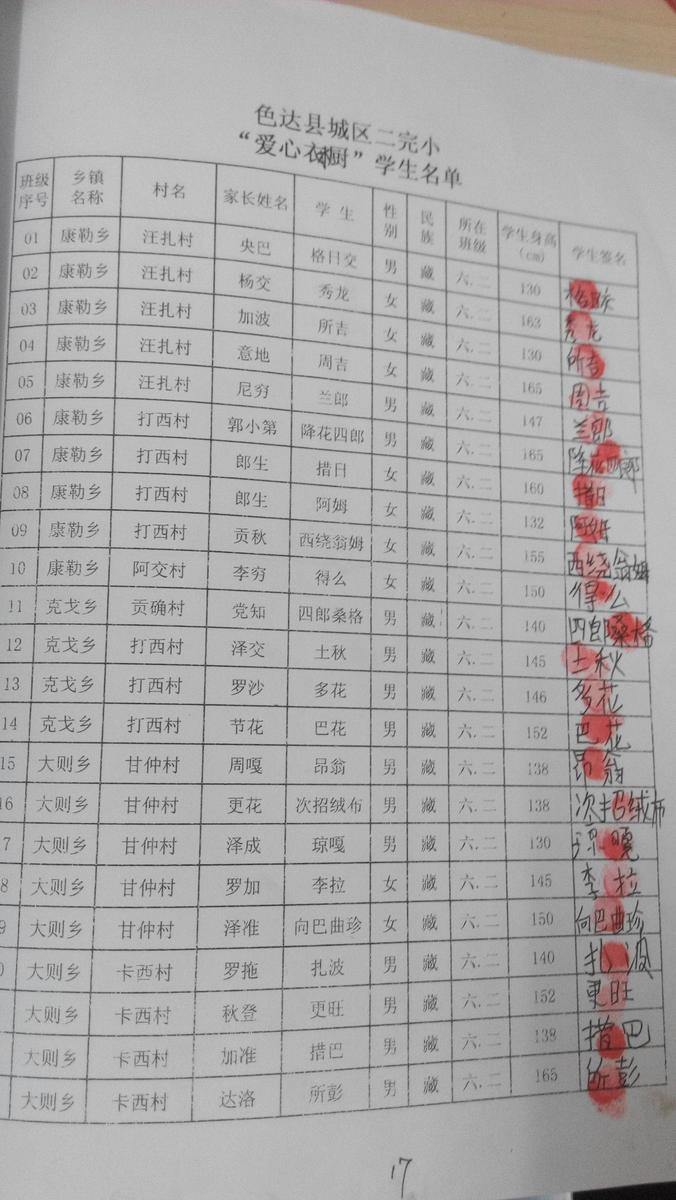 色达县城区二完小
“爱心衣橱”学生名单
班级序号 乡镇名称 村名 家长姓名 学生 性别 民族 所在班级 学生身高(cm) 学生签名
01 康勒乡 汪扎村 央巴 格日交 男 藏 六.二 130 格日交
02 康勒乡 汪扎村 杨交 秀龙 女 藏 六.二 163 秀龙
03 康勒乡 汪扎村 加波 所吉 女 藏 六.二 130 所吉
04 康勒乡 汪扎村 意地 周吉 女 藏 六.二 165 周吉
05 康勒乡 汪扎村 尼穷 兰郎 男 藏 六.二 147 兰郎
06 康勒乡 打西村 郭小第 降花四郎 男 藏 六.二 165 降花四郎
07 康勒乡 打西村 郎生 措日 女 藏 六.二 160 措日
08 康勒乡 打西村 郎生 阿姆 女 藏 六.二 132 阿姆
09 康勒乡 打西村 贡秋 西绕翁姆 女 藏 六.二 155 西绕翁姆
10 康勒乡 阿交村 李穷 得么 女 藏 六.二 150 得么
11 克戈乡 贡确村 党知 四郎桑格 男 藏 六.二 140 四郎桑格
12 克戈乡 打西村 泽交 土秋 男 藏 六.二 145 土秋
13 克戈乡 打西村 罗沙 多花 男 藏 六.二 146 多花
14 克戈乡 打西村 节花 巴花 男 藏 六.二 152 巴花
15 大则乡 甘仲村 周嘎 昂翁 男 藏 六.二 138 昂翁
16 大则乡 甘仲村 更花 次招绒布 男 藏 六.二 138 次招绒布
7 大则乡 甘仲村 泽成 琼嘎 男 藏 六.二 130 琼嘎
8 大则乡 甘仲村 罗加 李拉 女 藏 六.二 145 李拉
9 大则乡 甘仲村 泽准 向巴曲珍 女 藏 六.二 150 向巴曲珍
大则乡 卡西村 罗拖 扎波 男 藏 六.二 140 扎波
大则乡 卡西村 秋登 更旺 男 藏 六.二 152 更旺
大则乡 卡西村 加准 措巴 男 藏 六.二 138 措巴
大则乡 卡西村 达洛 所彭 男 藏 六.二 165 所彭
17